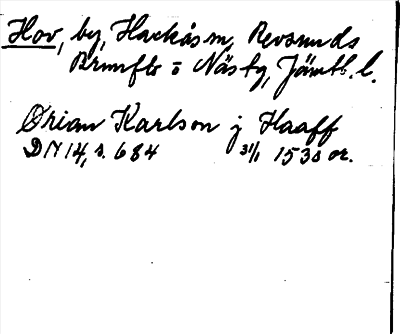 Hov, by, Hackås sn, Revsunds
Brunflo o Näs tg, Jämtl. l.
Ørian Karlson j Haaff
DN 14, s. 684 31/1 1530 or.